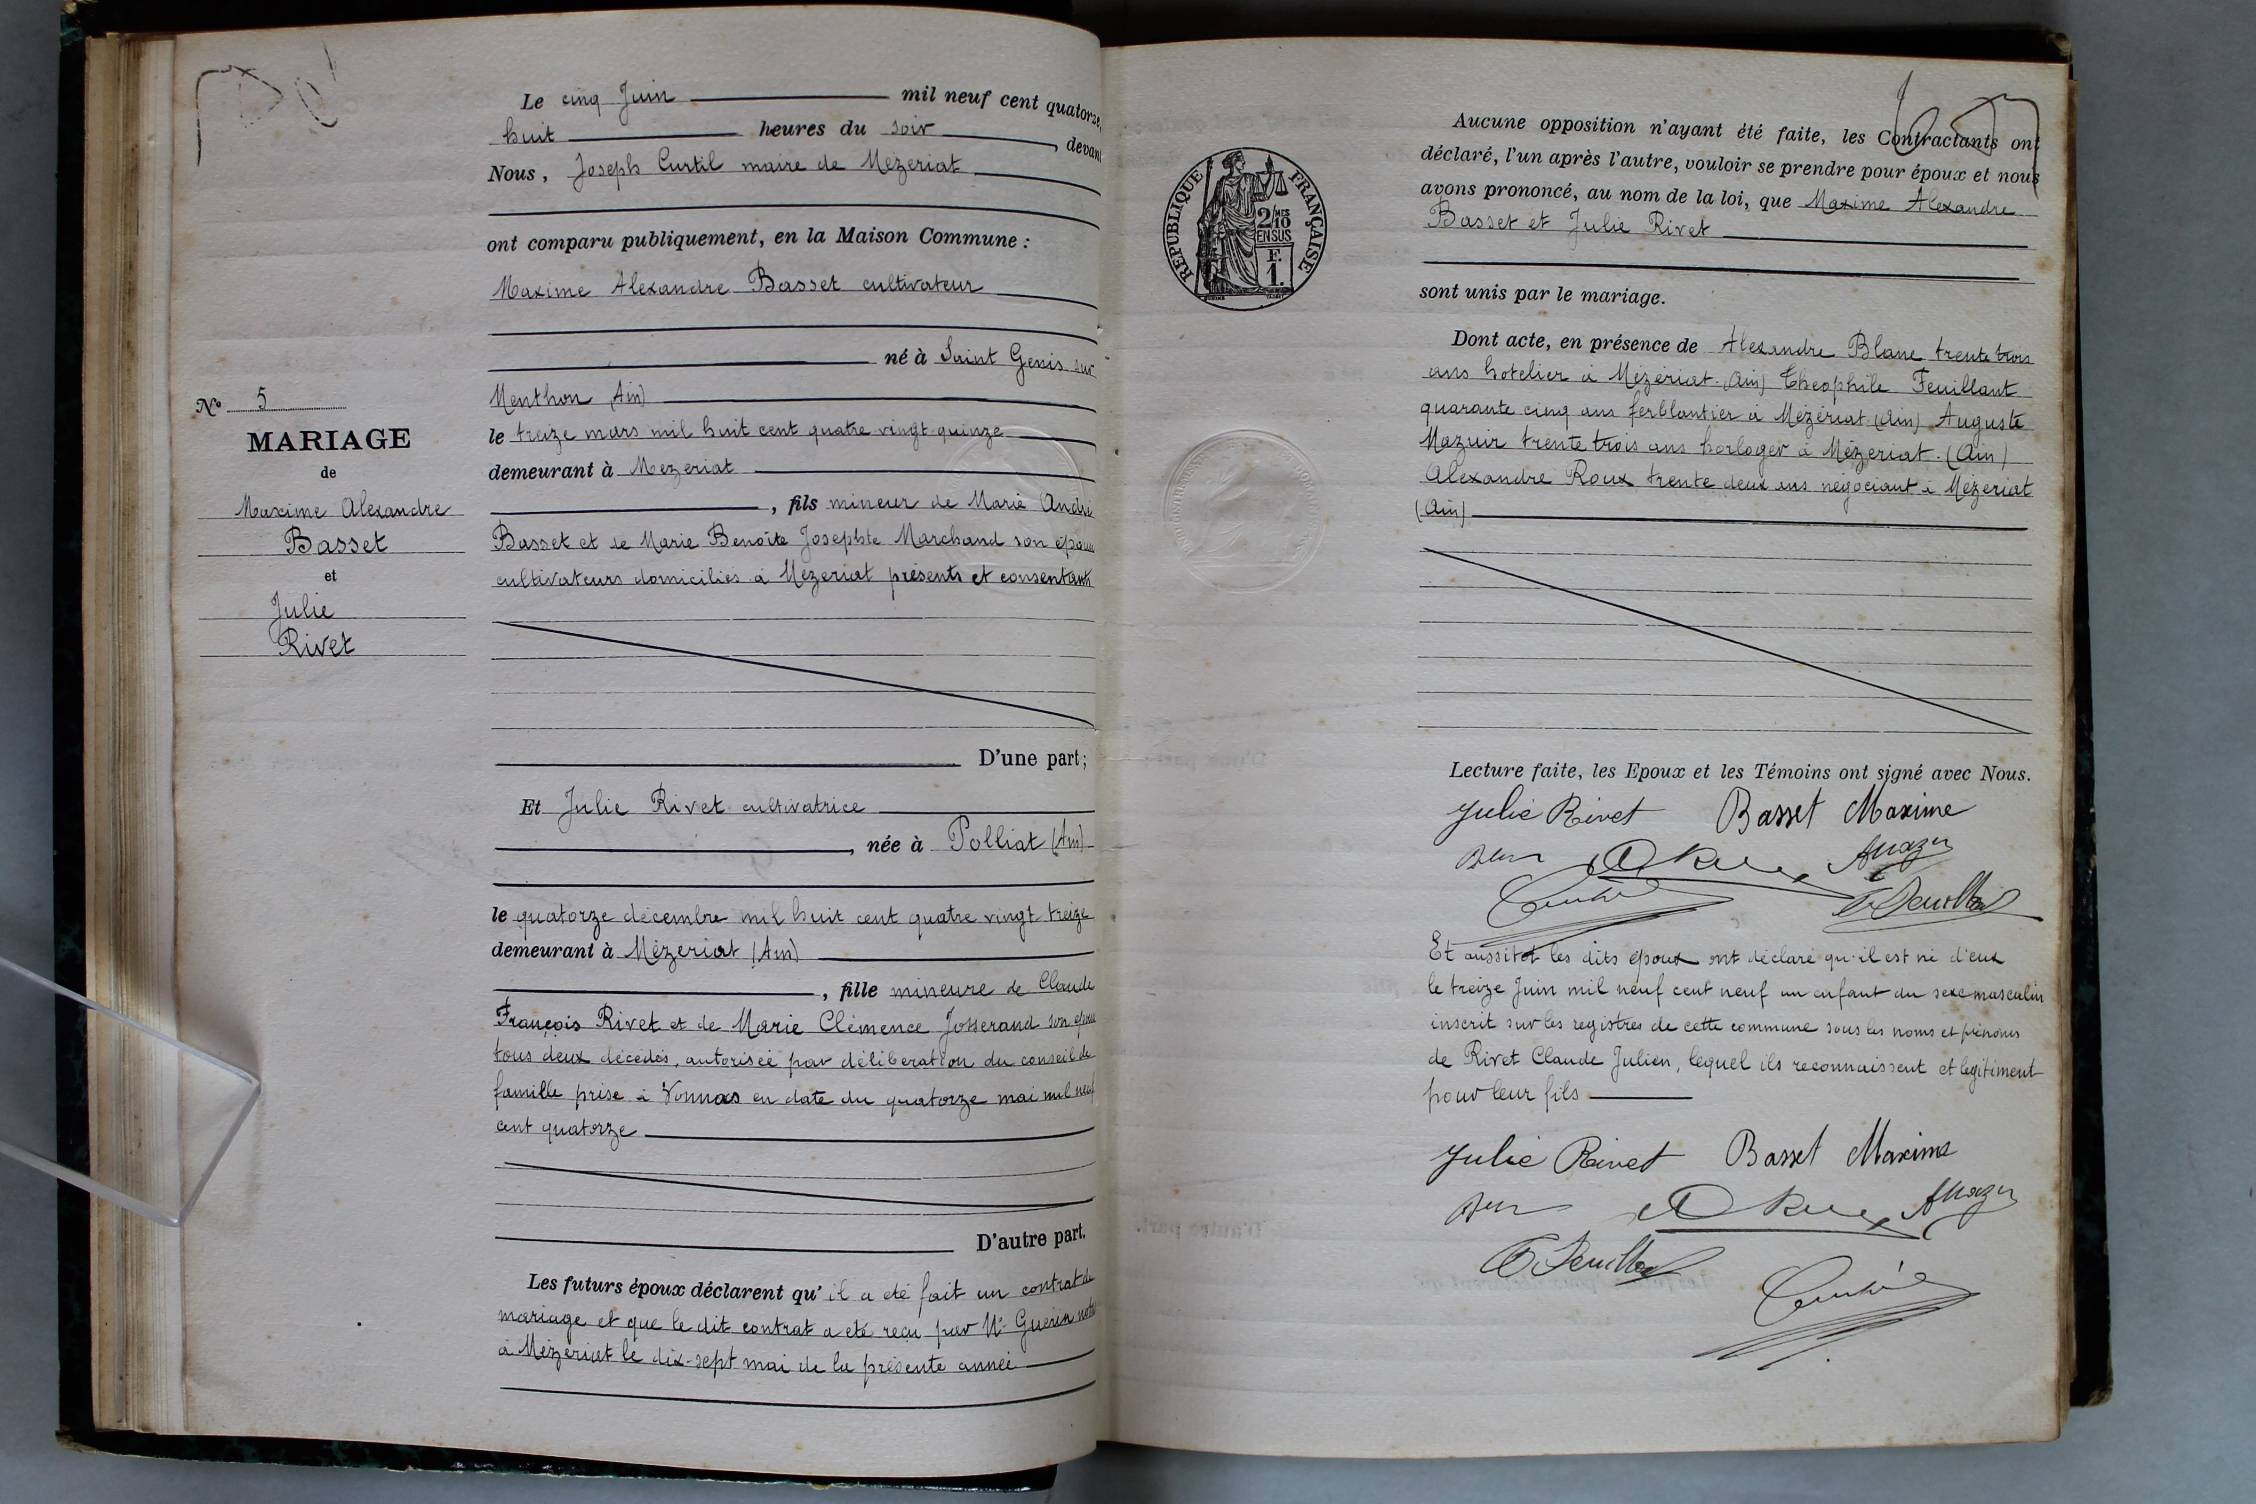 Le cinq Juin mil neuf cent quatorze,
huit heures du soir, devant
Nous, Joseph Curtil maire de Mézeriat
ont comparu publiquement, en la Maison Commune :
Maxime Alexandre Basset cultivateur
né à Saint Genis sur
Menthon (Ain)
le treize mars mil huit cent quatre vingt quinze
demeurant à Mezeriat
, fils mineur de Marie André
Basset et de Marie Benoîte Josephte Marchand son épouse
cultivateurs domiciliés à Mézeriat présents et consentants
D'une part;
Nº 5
MARIAGE
de
Maxime Alexandre
Basset
et
Julie
Rivet
Et Julie Rivet cultivatrice
, née à Polliat (Ain)
le quatorze décembre mil huit cent quatre vingt treize
demeurant à Mézeriat (Ain)
, fille mineure de Claude
François Rivet et de Marie Clémence Josserand son épouse
tous deux décédés, autorisée par déliberation du conseil de
famille prise à Vonnas en date du quatorze mai mil neuf
cent quatorze
D'autre part.
Les futurs époux déclarent qu' il a été fait un contrat de
mariage et que le dit contrat a été reçu par Me Guérin
à Mézériat le dix-sept mai de la présente année
RÉPUBLIQUE FRANÇAISE
2/10 MES
EN SUS
F.
1.
Aucune opposition n'ayant été faite, les Contractants ont
déclaré, l'un après l'autre, vouloir se prendre pour époux et nous
avons prononcé, au nom de la loi, que Maxime Alexandre
Basset et Julie Rivet
sont unis par le mariage.
Dont acte, en présence de Alexandre Blanc trente trois
ans hotelier à Mézériat (Ain) Théophile Feuillant
quarante cinq ans ferblantier à Mézériat (Ain) Auguste
Mazuir trente trois ans horloger à Mézeriat. (Ain)
Alexandre Roux trente deux ans négociant à Mézeriat
(Ain)
Lecture faite, les Epoux et les Témoins ont signé avec Nous.
Julie Rivet Basset Maxime
Et aussitot les dits époux ont déclaré qu'il est né d'eux
le treize Juin mil neuf cent neuf un enfant du sexe masculin
inscrit sur les registres de cette commune sous les noms et prénoms
de Rivet Claude Julien, lequel ils reconnaissent et legitiment
pour leur fils
Julie Rivet Basset Maxime